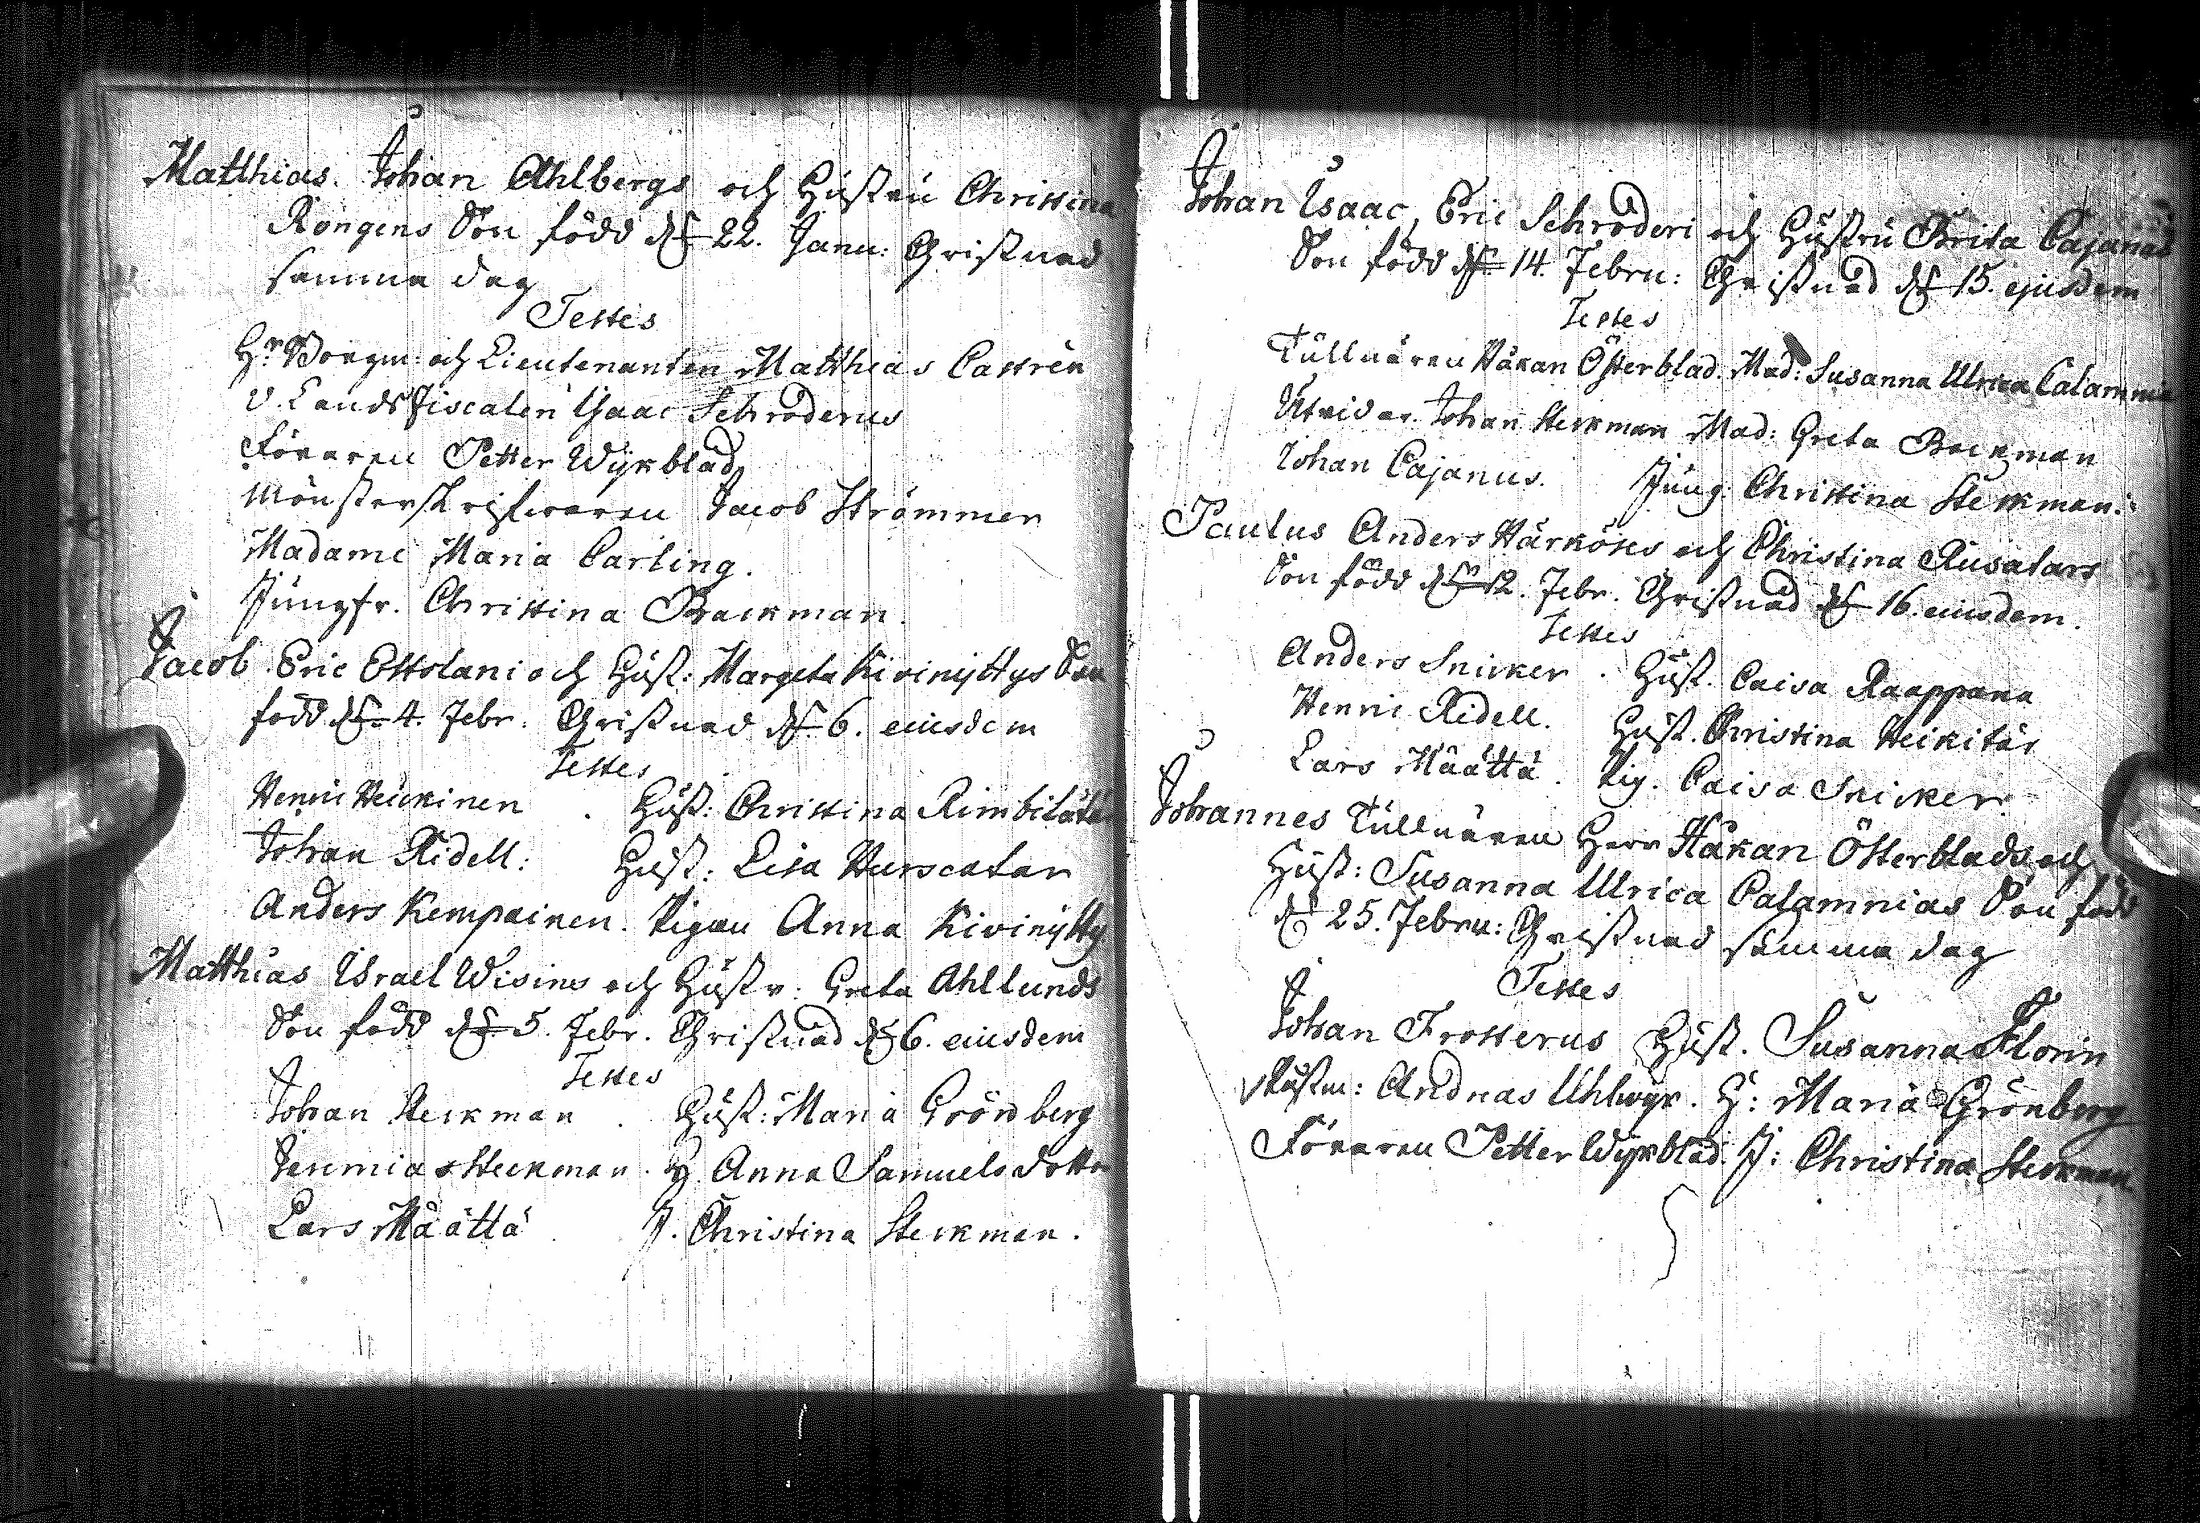 Matthias. Johan Ahlbergs och Hustru Christina
Rongens Son född d. 22. Janu: Christnad
samma dag
Testes
Hr Borgm: och Lieutenanten Matthias Castrén
v. Landsfiscalen Isaac Schroderus
Föraren Petter Wijkblad
Mönsterskrifvaren Jacob Strömmer
Madame Maria Carling.
Jungfr. Christina Backman.
Jacob. Eric Ottolani och Hust: Margeta Kivinyttys Son
född d. 4. Febr. Christnad d. 6. eiusdem
Testes
Henric Heickinen . Hust: Christina
Johan Ridell: Hust: Lisa Hurscatar
Anders Kempainen. Pigan Anna Kivinytty
Matthias Israel Wisius och Hustr: Greta Ahllunds
Son född d. 5. Febr. Christnad d. 6. eiusdem
Testes
Johan Steckman . Hust: Maria Gröndberg
Jeremias Steckman. H Anna Samuelsdotter
Lars Määttä J. Christina Steckman.
Johan Isaac, Eric Schroderi och Hustru Brita Cajanas
Son född d. 14. Febru: Christnad d. 15. ejusdem
Testes
Tullnären Håkan Österblad. Mad: Susanna Ulrica Calamnia
Johan Steckman Mad: Greta Backman
Johan Cajanus. Jung: Christina Steckman.
Paulus Anders Härkönes och Christina Rusatars
Son född d. 12. Febr. Christnad d. 16. eiusdem.
Testes
Anders Snicker . Hust. Caisa Raappana
Henric Ridell. Hust. Christina Heikitär
Lars Määttä. Pig. Caisa Snicker
Johannes Tullnären Herr Håkan Österblads och
Hust: Susanna Ulrica Calamnias Son född
d. 25. Febru: Christnad samma dag
Testes
Johan Frosterus Hust. Susanna Florin
Rustm: Andreas Uhlwijk. H: Maria Grönberg
Föraren Petter Wijkblad. J: Christina Steckman